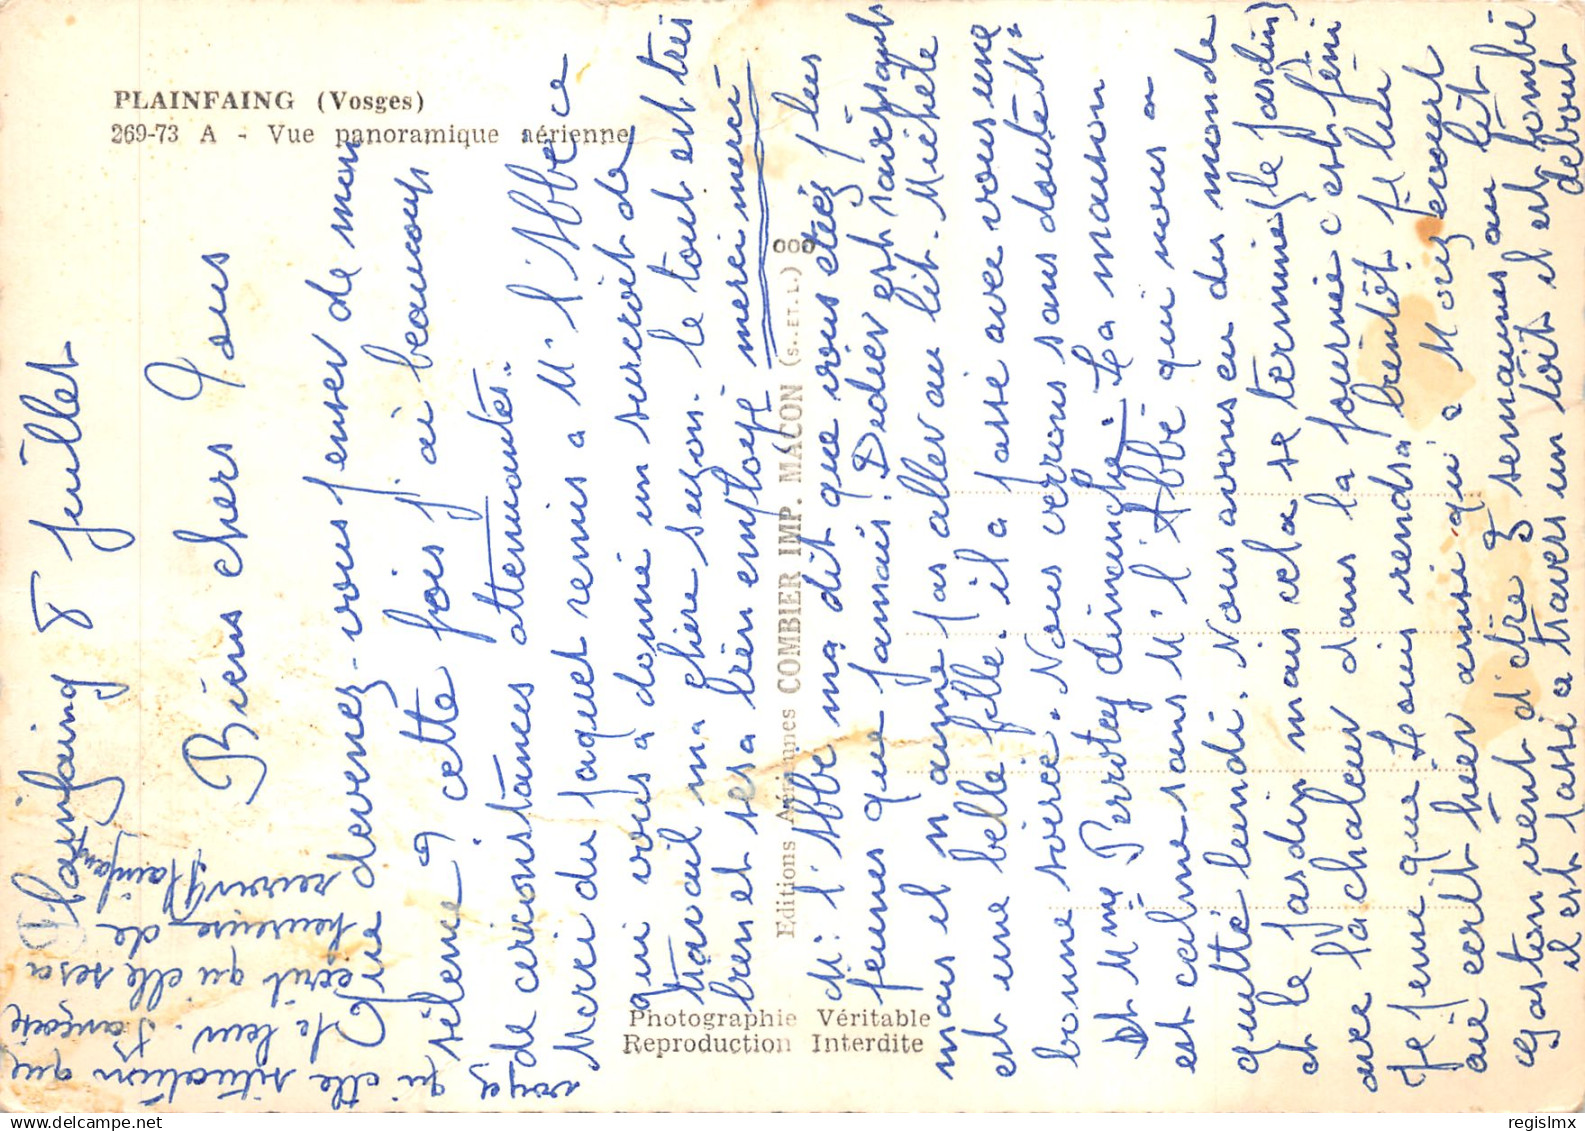 PLAINFAING (Vosges)
269-73 A - Vue panoramique aérienne
Editions Aériennes COMBIER IMP. MACON (S. ET. L.)
Photographie Véritable
Reproduction Interdite
Plainfaing 8 juillet
Biens chers Tous
Que devenez-vous penser de mon
silence, cette fois j'ai beaucoup
de circonstances attenuantes.
Merci du paquet remis a Mr l'Abbé ce
qui vous a donné un surcroit de
travail ma chère Suzon. le tout est très
bien et sera bien employé merci merci
Mr l'Abbé m'a dit que vous étiez plus
jeunes que jamais. Didier est
mais n'aime pas aller au lit. Michèle
est une belle fille. il a passé avec vous une
bonne soirée. Nous verrons sans doute Mr
et Mme Perrotey dimanche. La maison
est calme sans Mr l'Abbé qui nous a
quitté lundi. Nous avons eu du monde
et le jardin mais cela se termine (le jardin)
avec la chaleur dans la journée c'est fini
Je pense que Louis rendra bientôt
ai écrit hier ainsi qu'a
Gaston vient d'être 3 semaines au lit
il est passé a travers un toit et est tombé
debout
voyez qu'elle situation que
le leur. Françoise
écrit qu'elle sera
heureuse de
revoir Plainfaing
regislmx